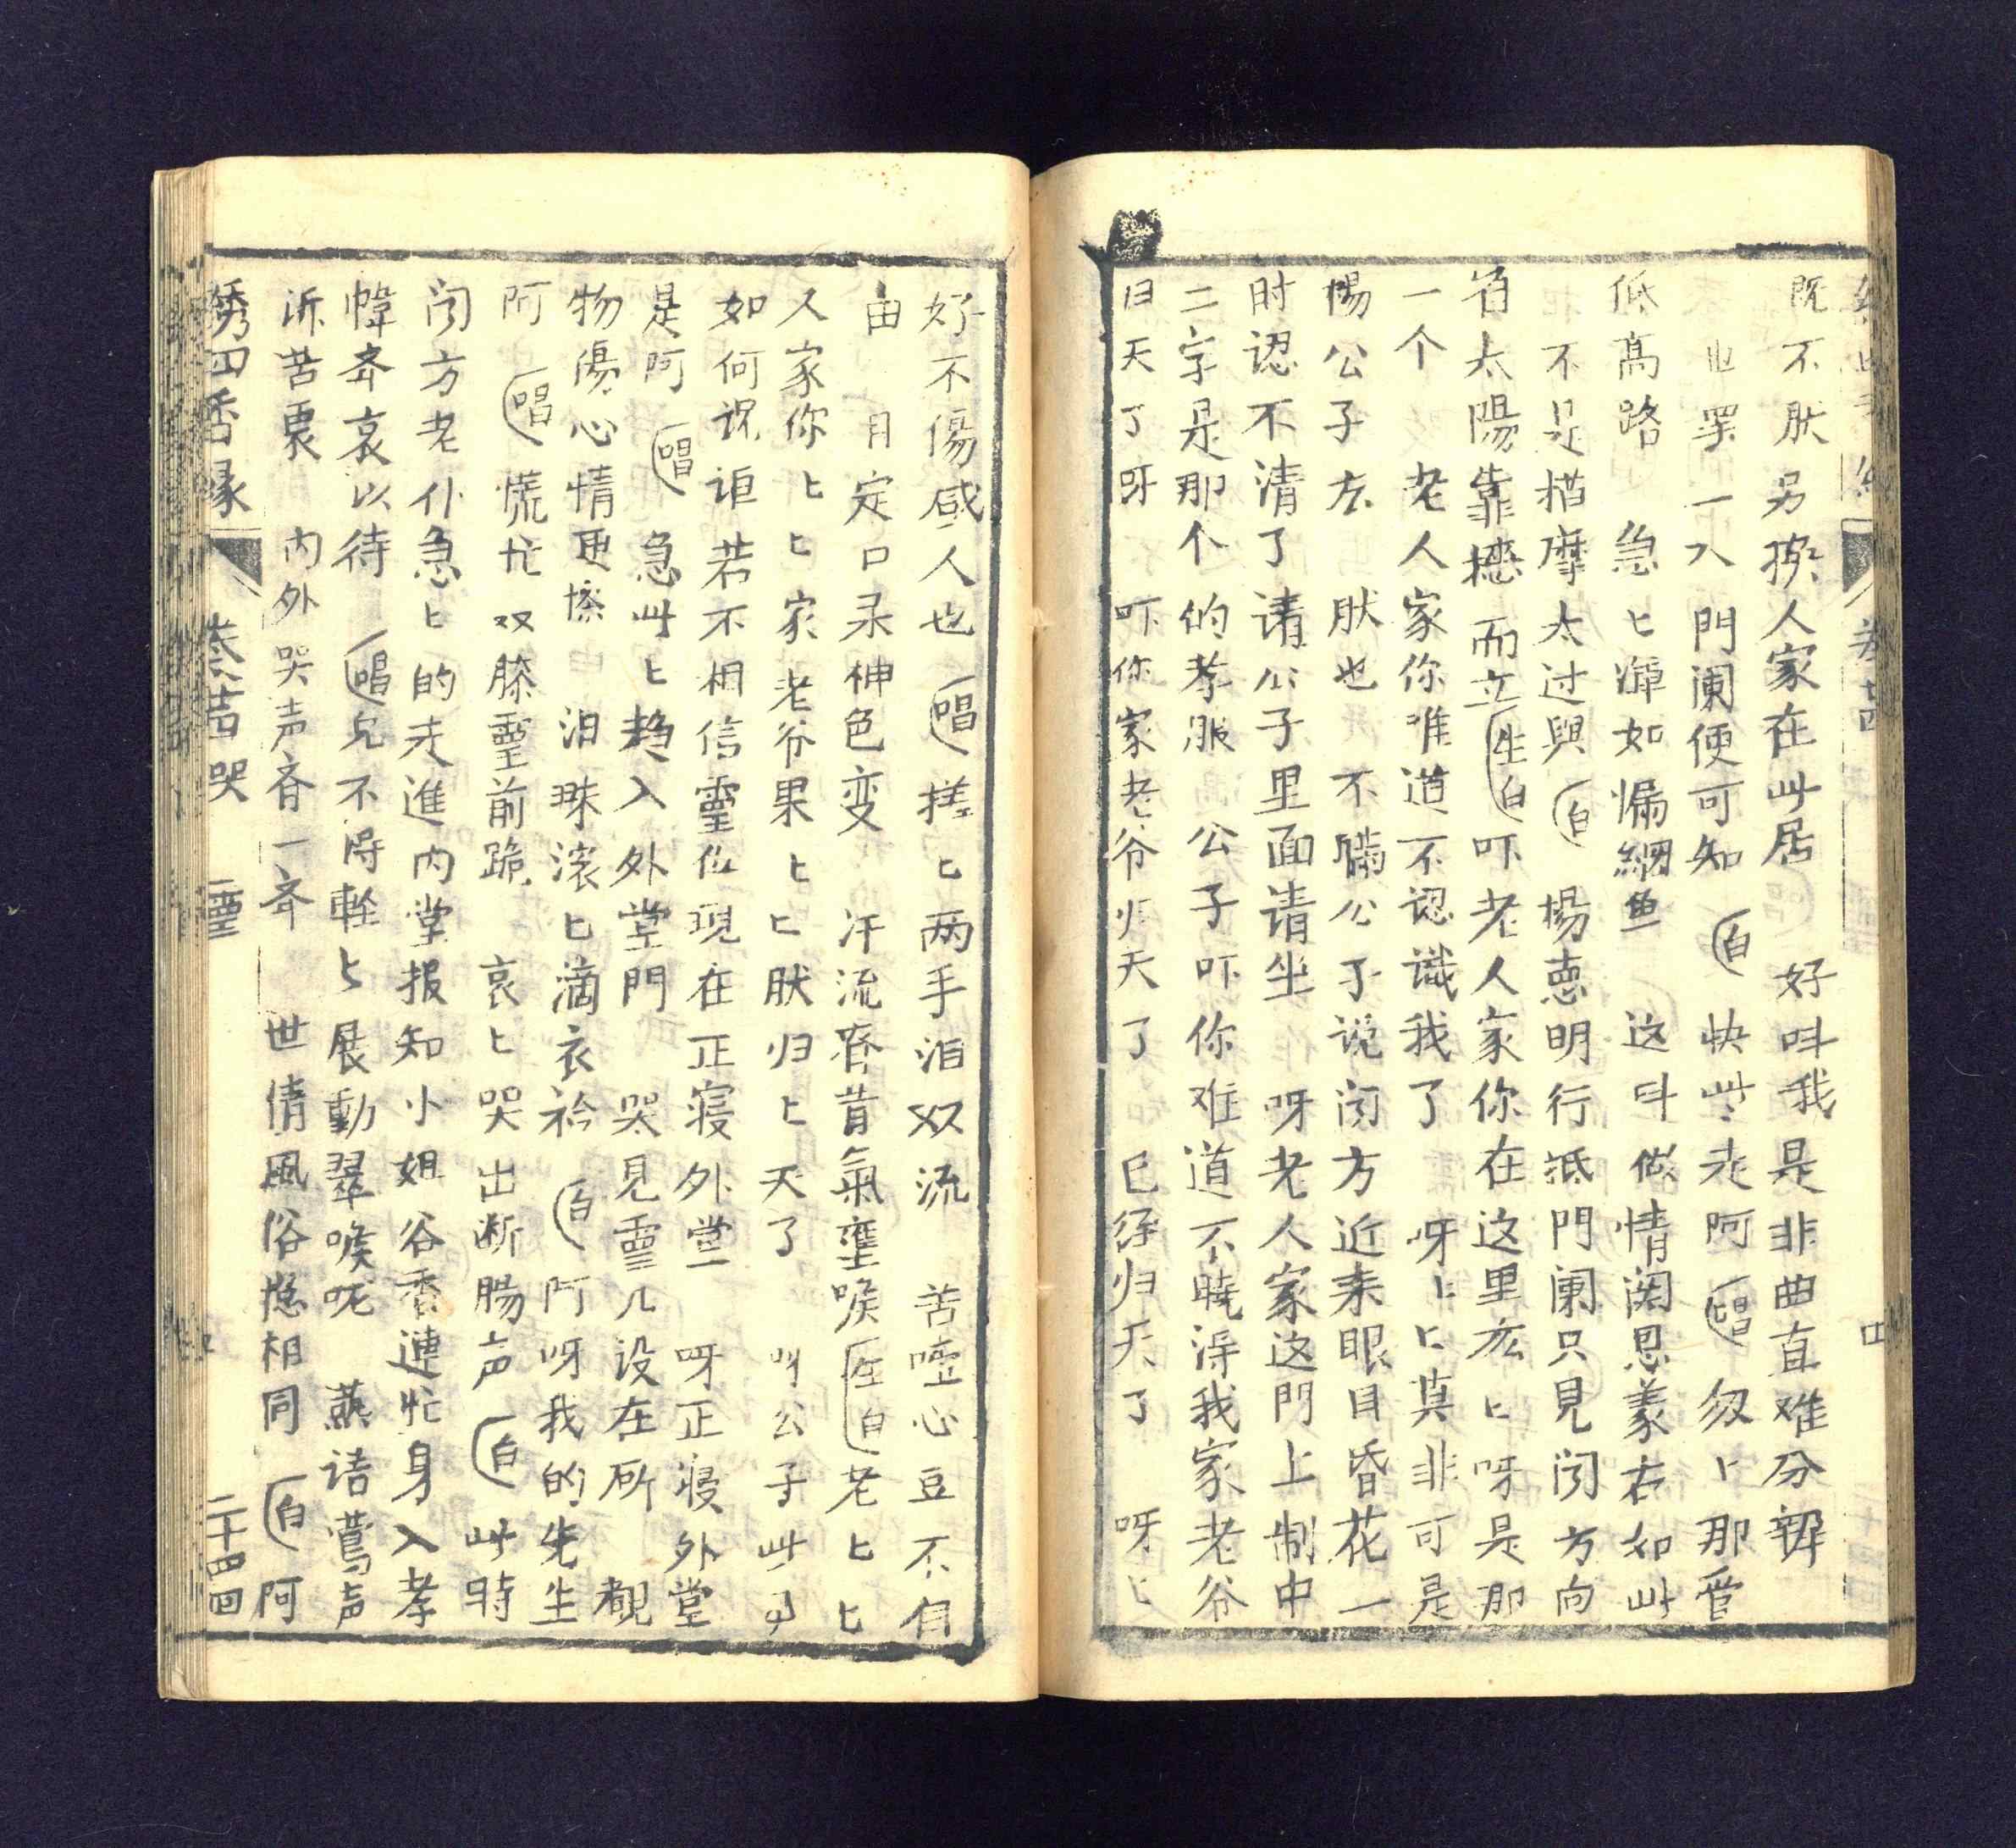 既不肰另換人家在此居　好呌我是非曲直难分辨
也罢一入門闌便可知 白 快些走阿 唱 匆匕那管
低高路　急匕渾如漏網鱼　这叫做情闊恩義右如此
不是揩摩太过與 白 楊悳明行抵門闌只見闵方向
着太陽靠壁而立 生白 吓老人家你在这里庅匕呀是那
一个　老人家你难道不認識我了　呀匕匕莫非可是
陽公子庅　肰也　不瞞公子说闵方近来眼目昏花一
时認不清了请公子里面请坐　呀老人家这門上制中
二字是那个的孝服　公子吓你难道不曉淂我家老爷
归天了呀　吓你家老爷归天了　已经归天了　呀匕
好不傷感人也 唱 搓匕两手泪双流　苦噎心豆不自
由　目定口呆神色变　汗流脊背氣壅喉 生白 老匕匕
人家你匕匕家老爷果匕匕肰归匕天了　叫公子此事
如何说诳若不相信靈位現在正寝外堂　呀正寝外堂
是阿 唱 急此匕趋入外堂門　哭見靈几设在斫　覩
物傷心情更慘　泪珠滚匕滴衣衿 白 阿呀我的先生
阿 唱 慌忙双膝靈前跪　哀匕哭出断腸声 白 此時
闵方老仆急匕的走進内堂报知小姐谷香連忙身入孝
幃斉哀以待 唱 免不得輕匕展動翠喉咙　燕语鶯声
泝苦衷　内外哭声斉一斉　世情風俗总相同 白 阿
綉四香缘　恭吉哭　靈　二十四回